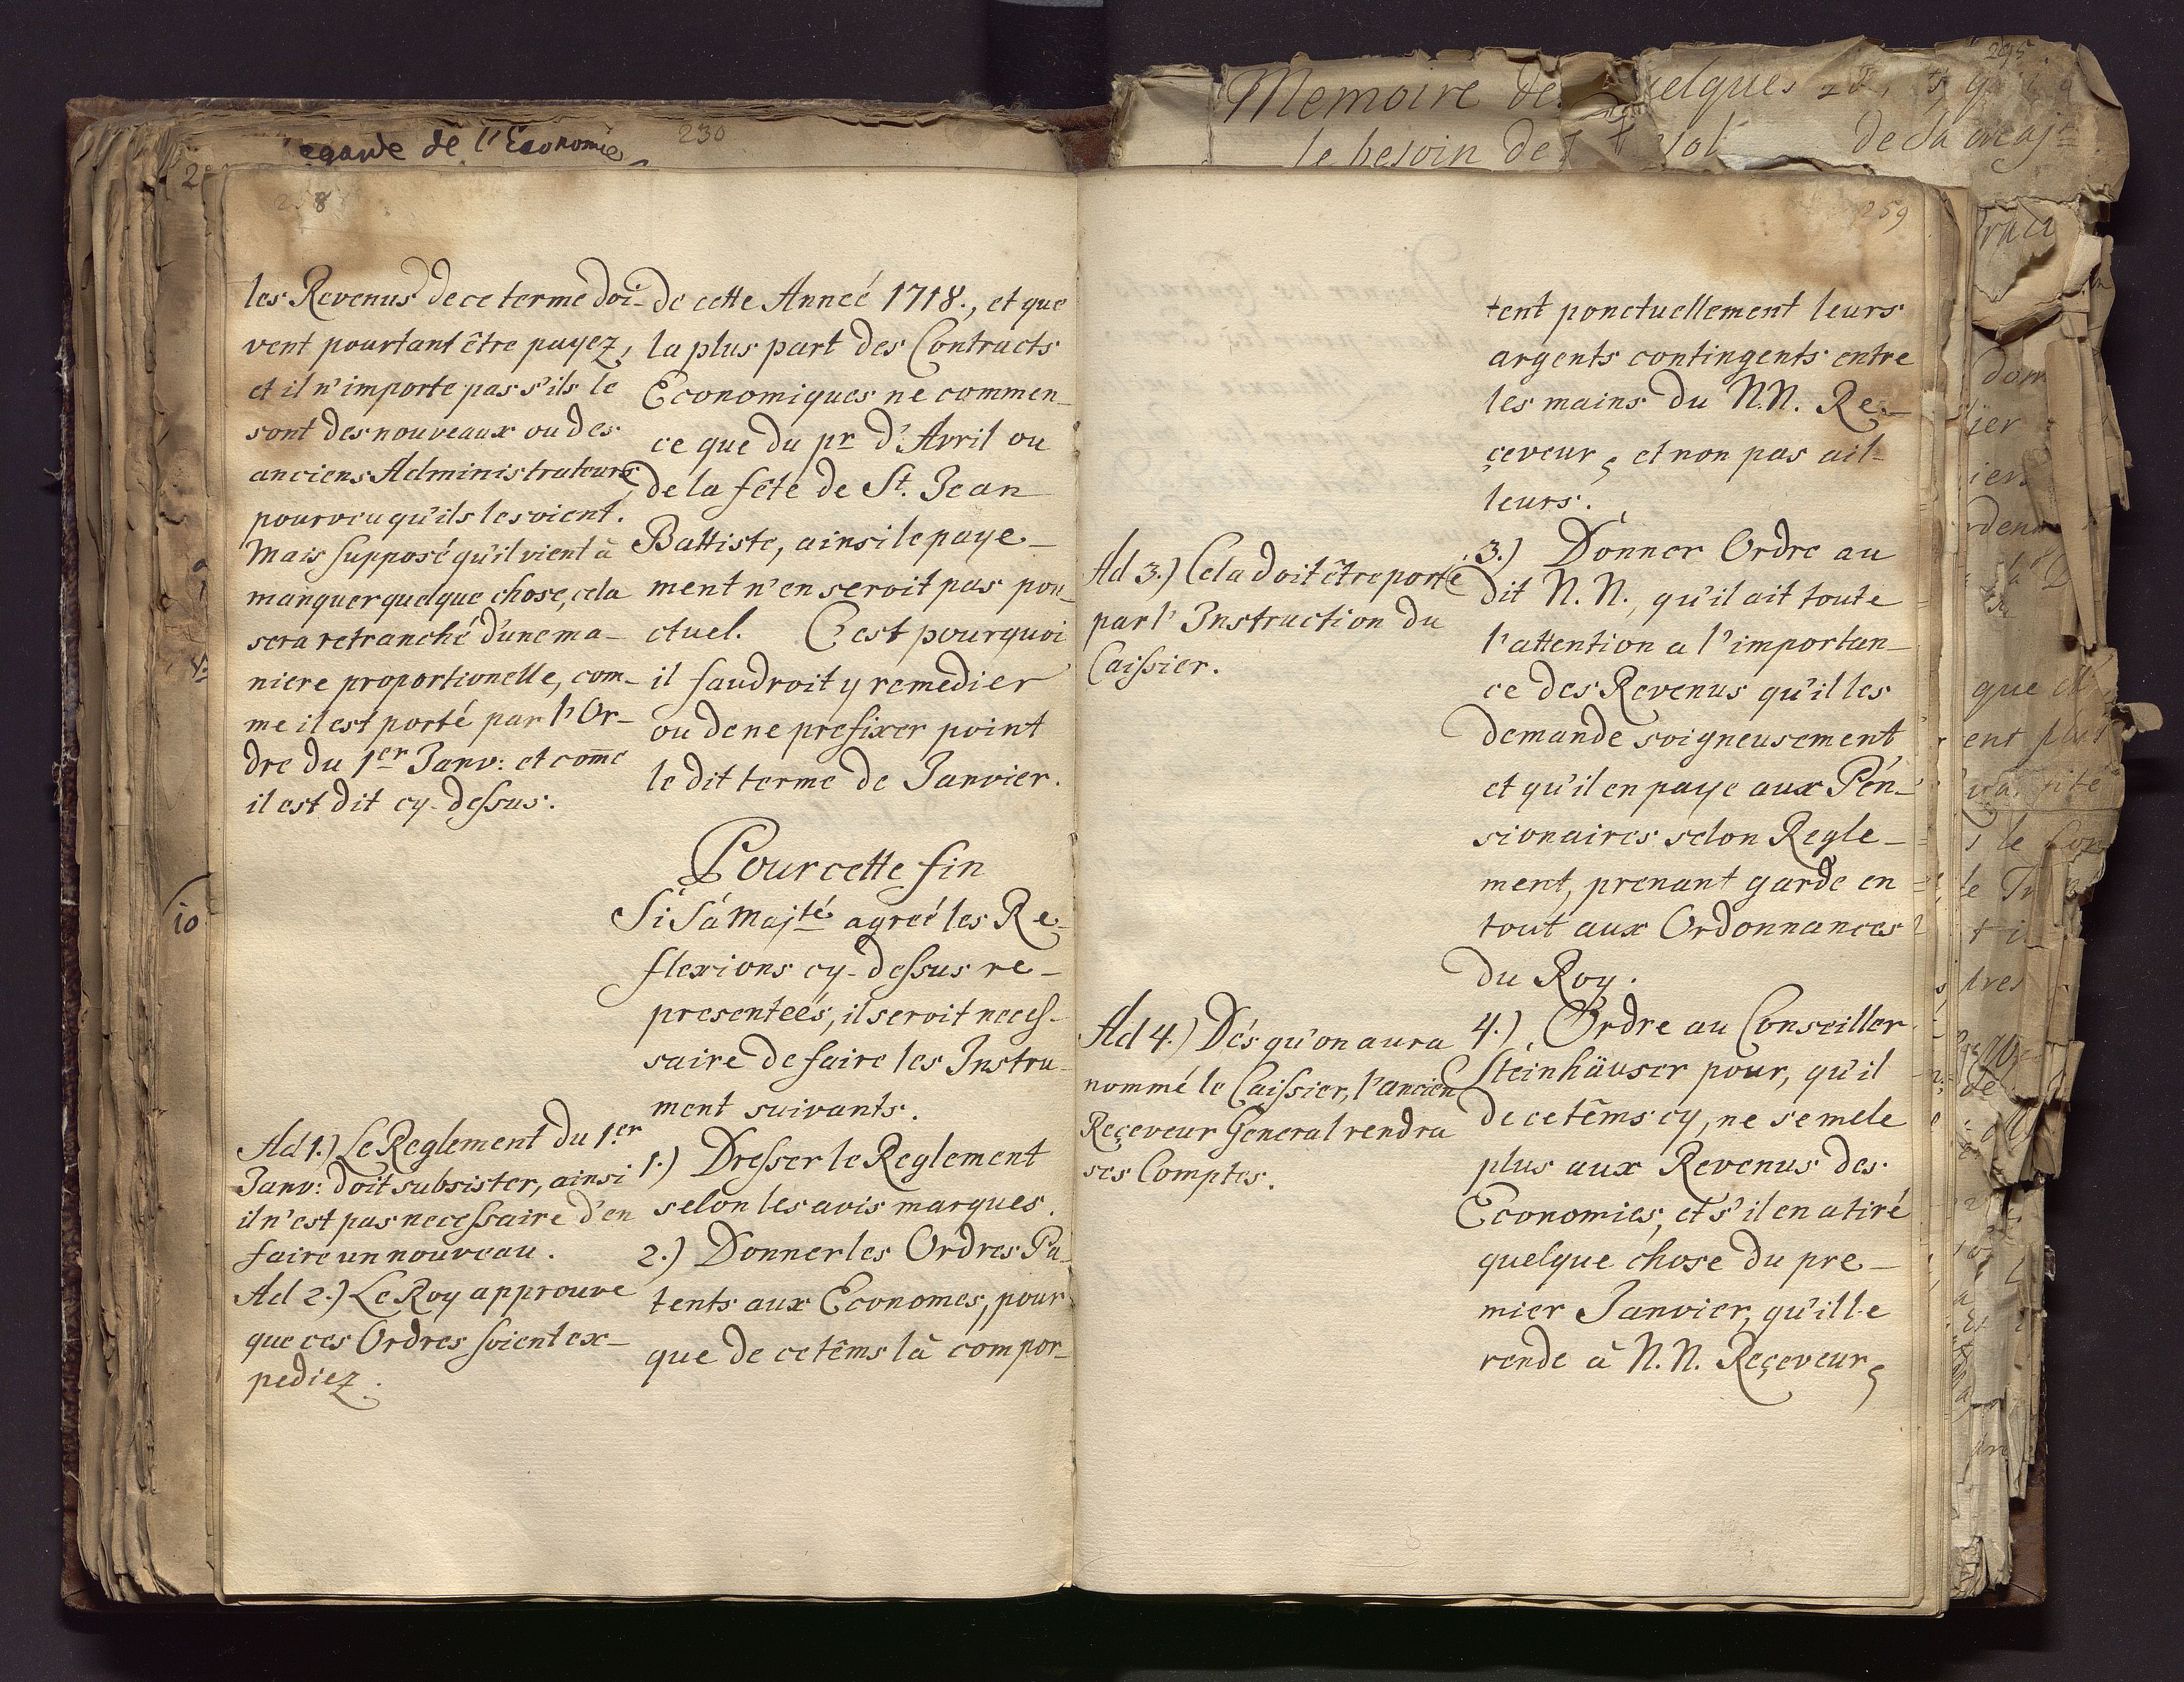 egarde de l'Economie
230
258
les Revenus de ce terme doi-
vent pourtant être payez,
et il n'importe pas s'ils le
sont des nouveaux ou des
anciens Administrateurs,
pourveu qu'ils le soient.
Mais supposé qu'il vient à
manquer quelque chose, cela
sera retranché d'une ma-
niere proportionelle, com-
me il est porté par l'Or-
dre du 1er Janv: et com̅e
il est dit cy-dessus.
Ad 1.) Le Reglement du 1.er
Janv: doit subsister, ainsi
il n'est pas necessaire d'en
faire un nouveau.
Ad 2.) Le Roy approuve
que ces Ordres soient ex-
pediez.
de cette Anneé 1718., et que
la plus part des Contracts
Economiques ne commen-
ce que du pr d'Avril ou
de la fête de St. Jean
Battiste, ainsi le paye-
ment n'en seroit pas pon-
ctuel. C'est pourquoi
il faudroit y remedier
ou de ne prefixer point
le dit terme de Janvier.
Pour cette fin
Si Sa Majté agreé les Re-
flexions cy-dessus re-
presenteés, il seroit neces-
saire de faire les Instru-
ment suivants.
1.) Dresser le Reglement
selon les avis marques.
2.) Donner les Ordres Pa-
tents aux Economes, pour
que de ce têms là compor-
Memoire de quelques
le besoin de de Sa Majté
295
259
Ad 3.) Cela doit être porté
par l'Instruction du
Caissier.
Ad 4.) Dés qu'on aura
nommé le Caissier, l'ancien
Reçeveur General rendra
ses Comptes.
tent ponctuellement leurs
argents contingents entre
les mains du N.N. Re-
çeveur, et non pas ail-
leurs.
3.) Donner Ordre au
dit N.N., qu'il ait toute
l'attention a l'importan-
ce des Revenus qu'il les
demande soigneusement
et qu'il en paye aux Pen-
sionaires selon Regle-
ment, prenant garde en
tout aux Ordonnances
du Roy.
4.) Ordre au Conseiller
Steinhäuser pour, qu'il
de ce têms cy, ne se mele
plus aux Revenus des
Economies, et s'il en a tiré
quelque chose du pre-
mier Janvier, qu'il le
rende à N.N. Reçeveur,
10